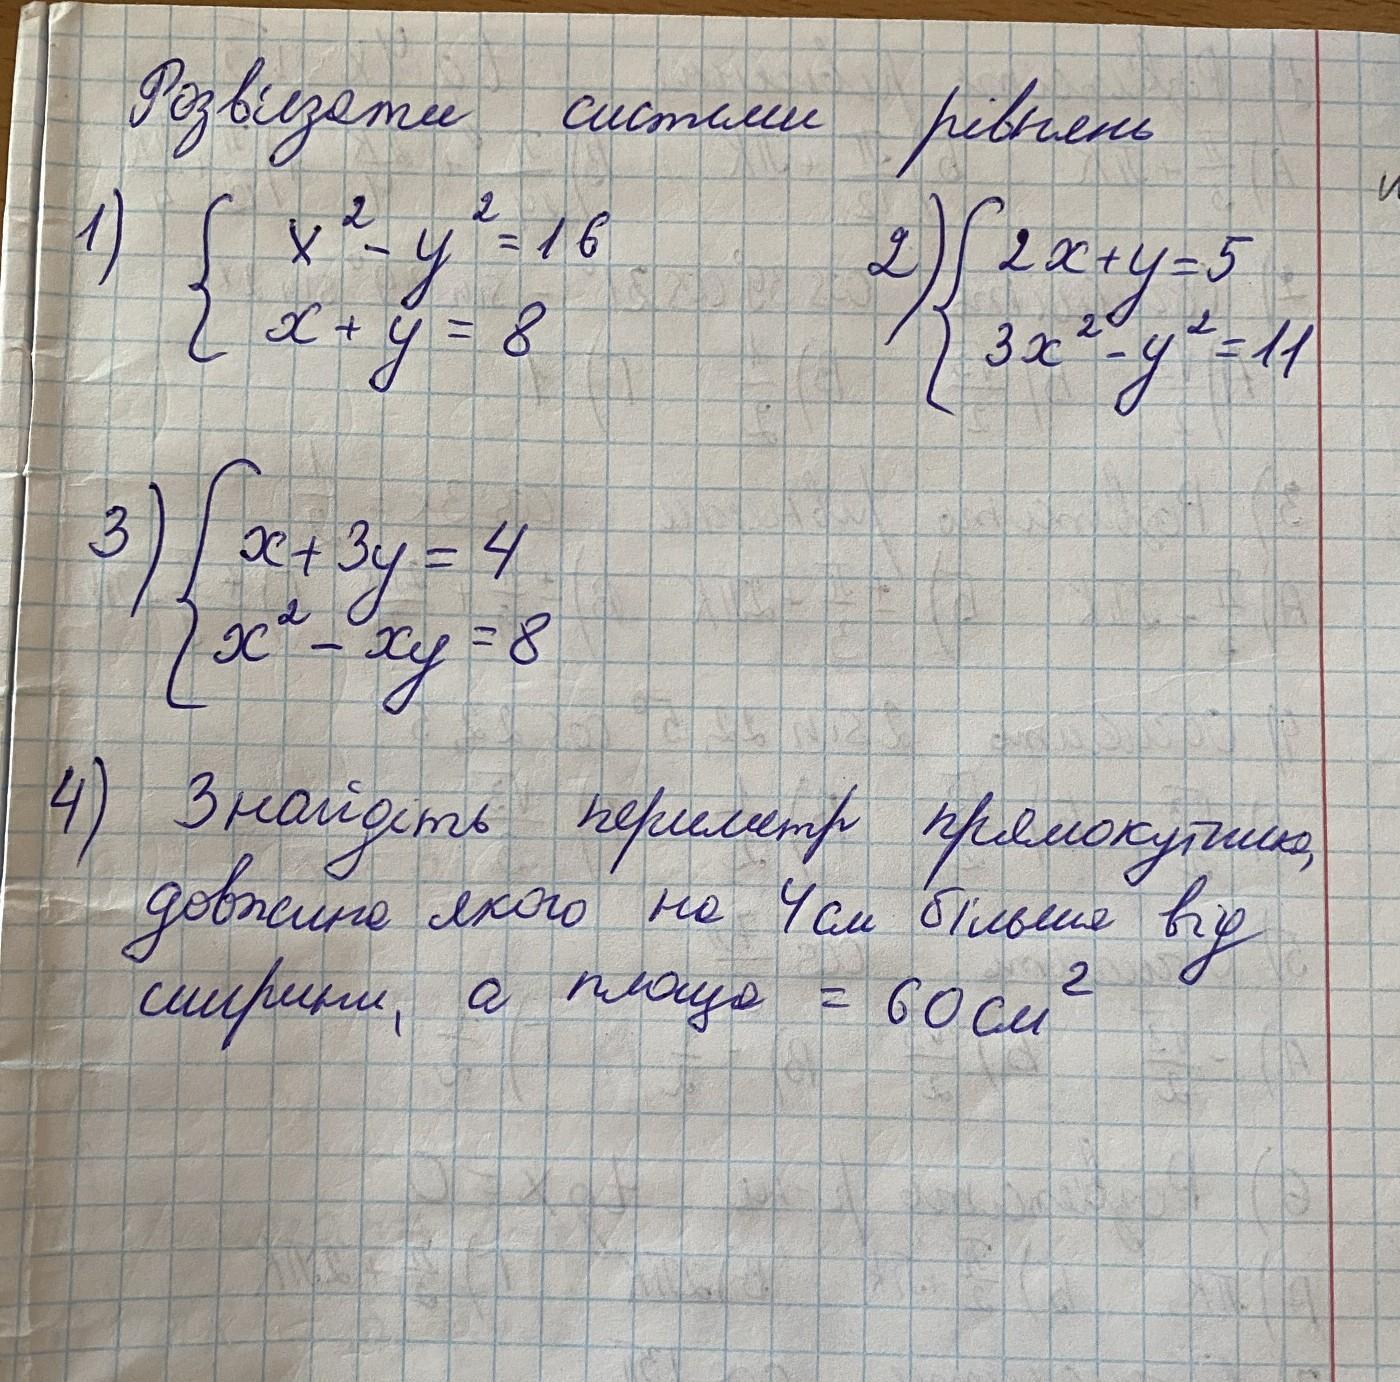 Розв'язати системи рівнянь
1) { x² - y² = 16
x + y = 8
2) { 2x + y = 5
3x² - y² = 11
3) { x + 3y = 4
x² - xy = 8
4) Знайдіть периметр прямокутника,
довжина якого на 4 см більша від
ширини, а площа = 60 см²